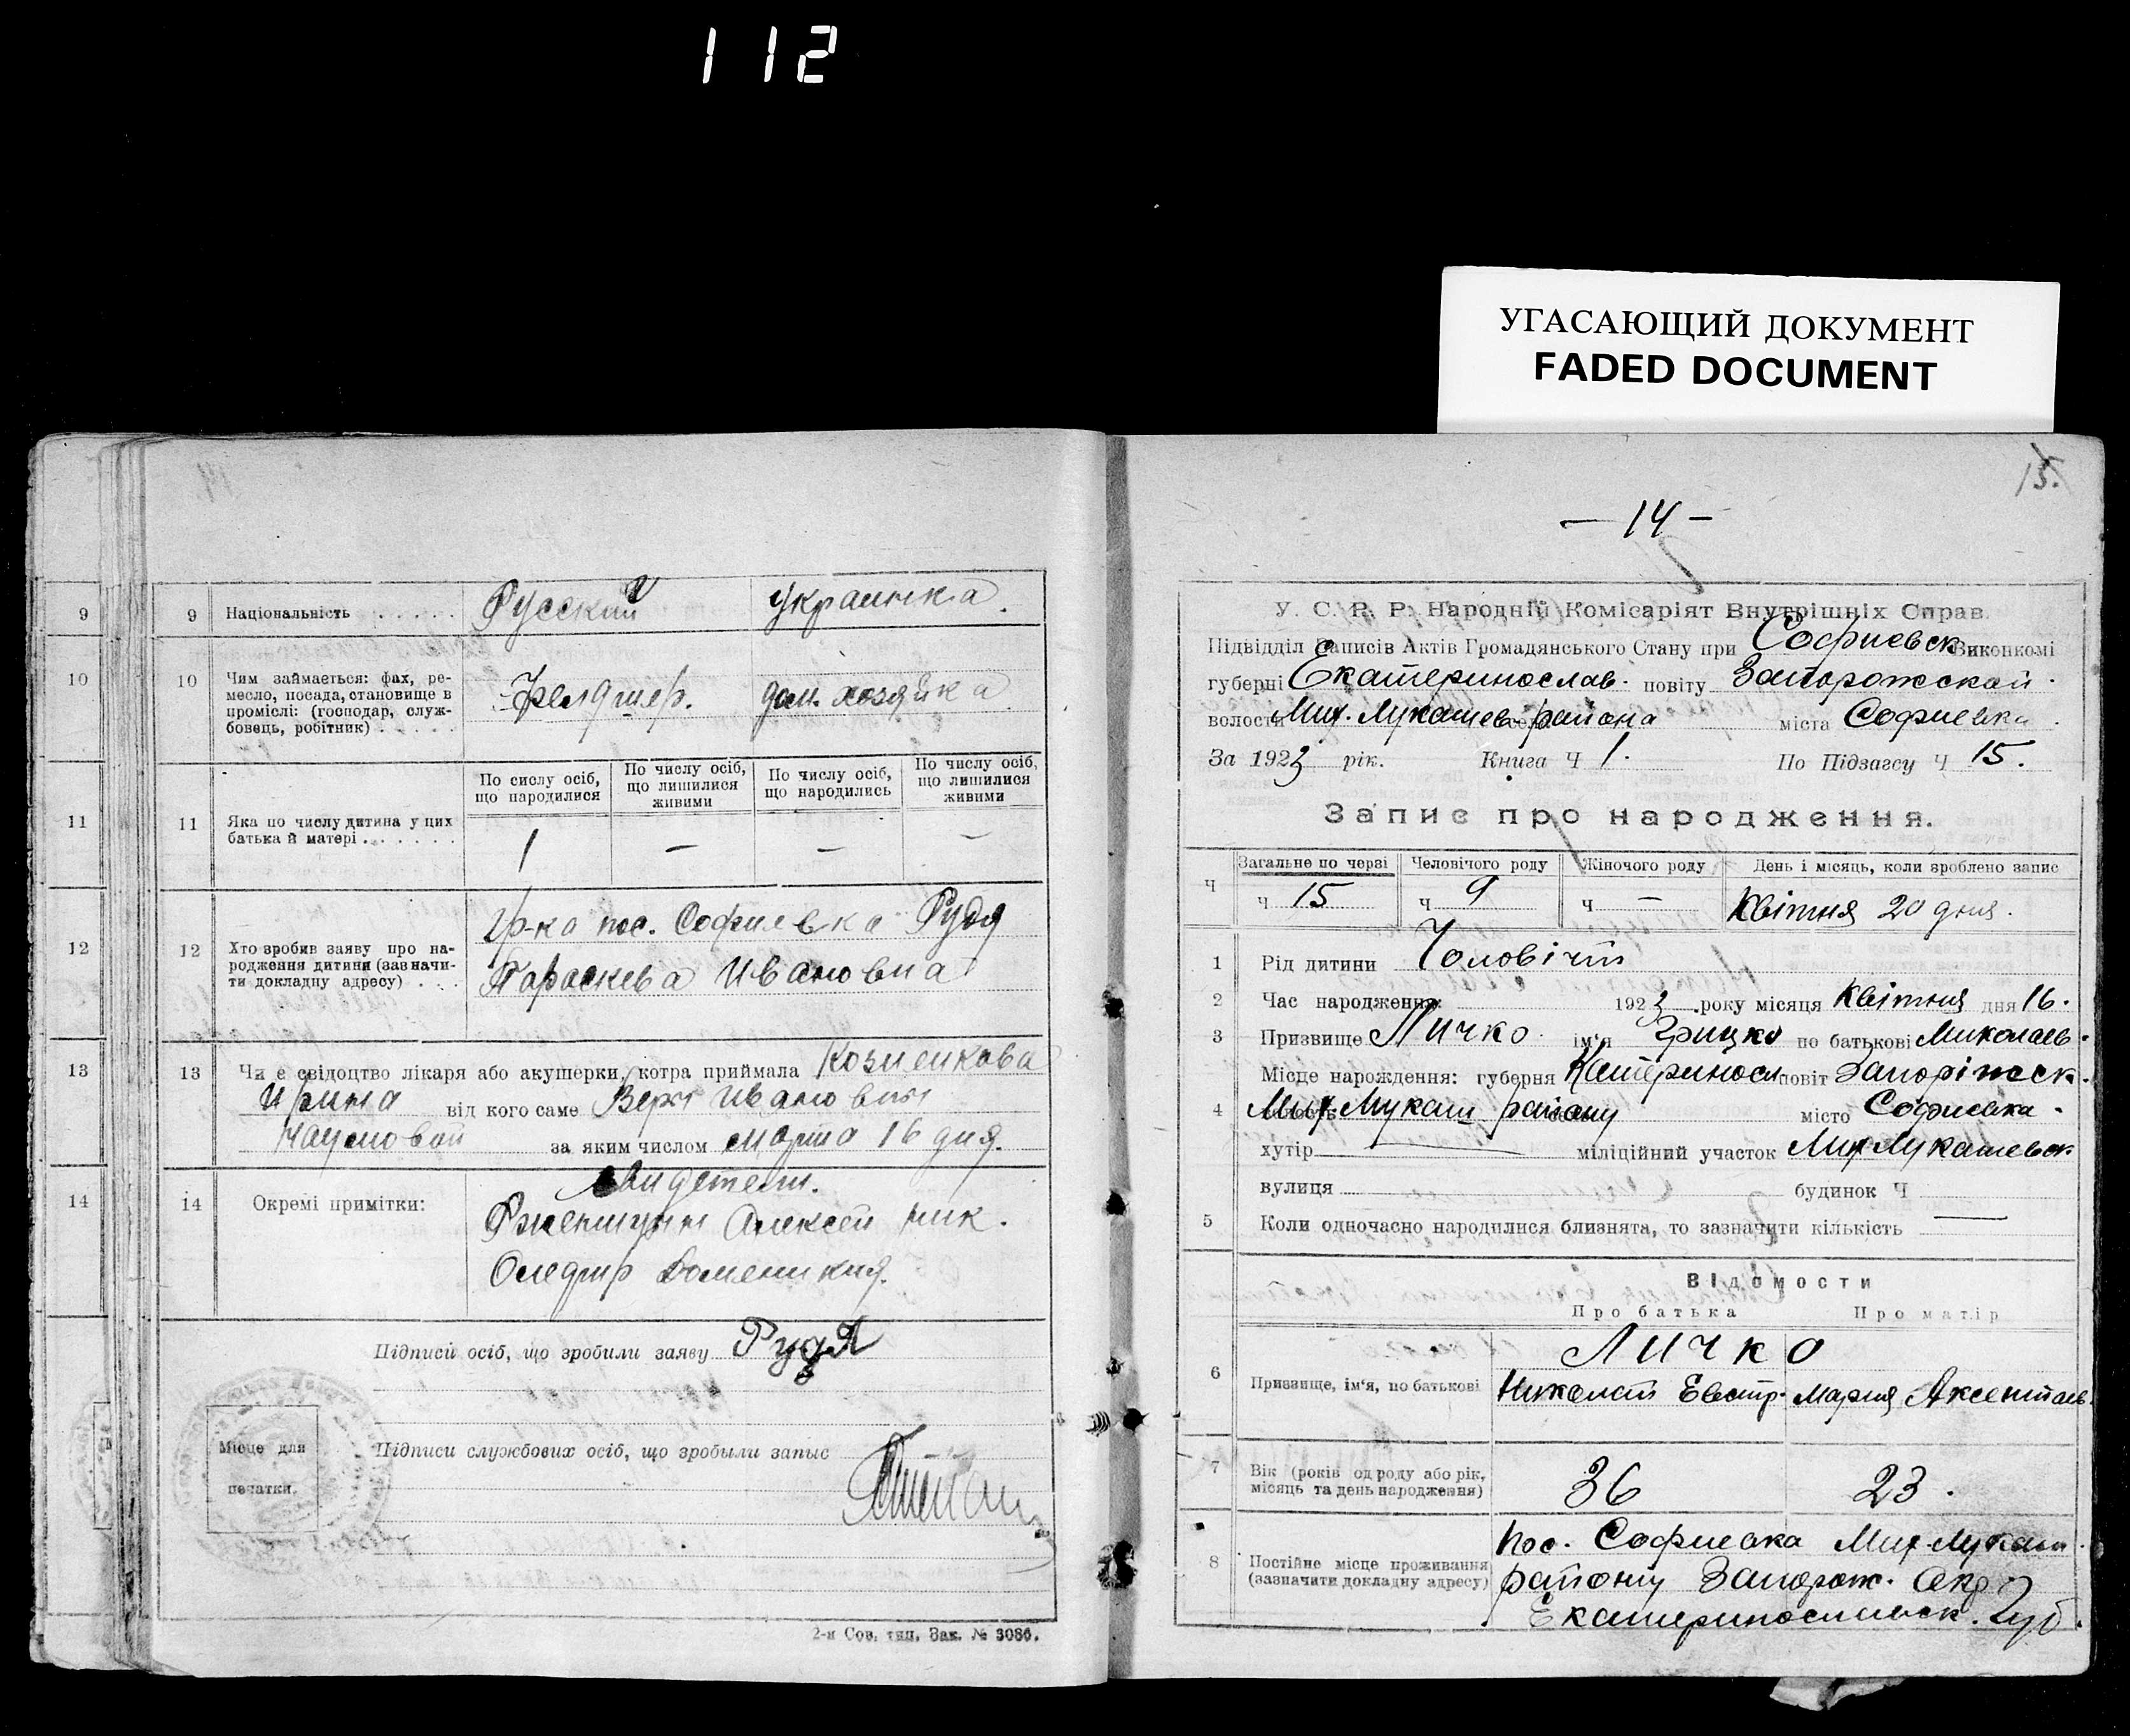 112
УГАСАЮЩИЙ ДОКУМЕНТ
FADED DOCUMENT
9
10
11
12
13
14
9 Національність . . . . . Русский украинка.
10 Чим займається: фах, ре-
месло, посада, становище в
проміслі: (господар, служ-
бовець, робітник) . . . . .
Фелдшер. дом. хозяйка
11 Яка по числу дитина у цих
батька й матері . . . . . .
По сислу осіб, що народилися
По числу осіб, що лишилися живими
По числу осіб, що народились
По числу осіб, що лишилися живими
1 — — —
12 Хто зробив заяву про на-
родження дитини (зав начи-
ти докладну адресу) . . .
Гр-ка пос. Софиевка Рудя
Параскева Ивановна
13 Чи є свідоцтво лікаря або акушерки, котра приймала
Ирина від кого саме Веры Ивановны
Наумовой за яким числом марта 16 дня.
14 Окремі примітки:
Свидетели.
Алексей Ник.
Підписи осіб, що зробили заяву Рудя
Місце для
печатки.
Підписи службових осіб, що зробыли запыс
2-я Сов. тип. Зак. № 3086.
15.
— 14 —
У. С. Р. Р. Народній Комісаріят Внутрішніх Справ.
Підвідділ Записів Актів Громадянського Стану при Софиевск Виконкомі
губерні Екатеринослав. повіту Запорожской.
волости Мих. Лукашев. района міста Софиевки.
За 1923 рік. Книга Ч 1. По Підзагсу Ч 15.
Запис про народження.
Ч
Загальне по черзі Человічого роду Жіночого роду День і місяць, коли зроблено запис
ч 15 ч 9 ч — Квітня 20 дня.
1 Рід дитини Чоловічій
2 Час народження: 1923 .року місяця Квітня дня 16.
3 Призвище Личко ім'я Грицко по батькові Миколаев.
Місце народження: губерня Катериносл повіт Запоріжск.
4 Мих Лукаш району місто Софиевка.
хутір — міліційний участок Мих Лукашевск
вулиця будинок Ч
5 Коли одночасно народилися близнята, то зазначити кількість —
Відомости
Про батька Про матір
6 Призвище, ім'я, по батькові
Личко
Николай Евстр. Мария Аксентьев.
7 Вік (років од роду або рік,
місяць та день народження)
36 23.
8 Постійне місце проживання
(зазначити докладну адресу)
пос. Софиевка Мих-Лукаш.
району Запорож. Окр
Екатеринославск. Губ.